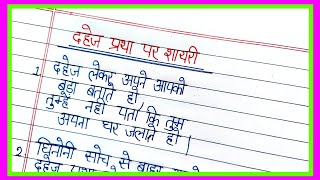 दहेज प्रथा पर शायरी
1. दहेज लेकर अपने आपको
बड़ा बताते हो
तुम्हें नहीं पता कि तुम
अपना घर जलाते हो।
2. घिनोनी सोच से बाहर
दहेज